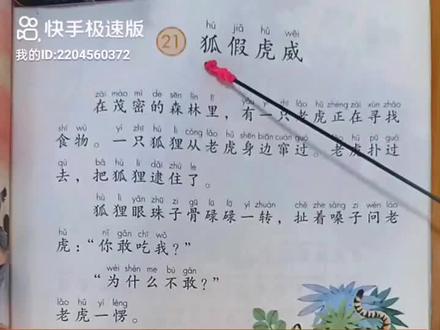 快手极速版
我的ID:2204560372
hú jiǎ hǔ wēi
21 狐假虎威
zài mào mì de sēn lín lǐ
在茂密的森林里，有一只老虎正在寻找
shí wù yì zhī hú li cóng lǎo hǔ shēn biān cuàn guò lǎo hǔ pū guò
食物。一只狐狸从老虎身边窜过。老虎扑过
qù bǎ hú li dǎi zhù le
去，把狐狸逮住了。
hú li yǎn zhū zi gū lù lù yì zhuàn chě zhe sǎng zi wèn lǎo
狐狸眼珠子骨碌碌一转，扯着嗓子问老
hǔ nǐ gǎn chī wǒ
虎：“你敢吃我？”
wèi shén me bù gǎn
“为什么不敢？”
lǎo hǔ yí lèng
老虎一愣。